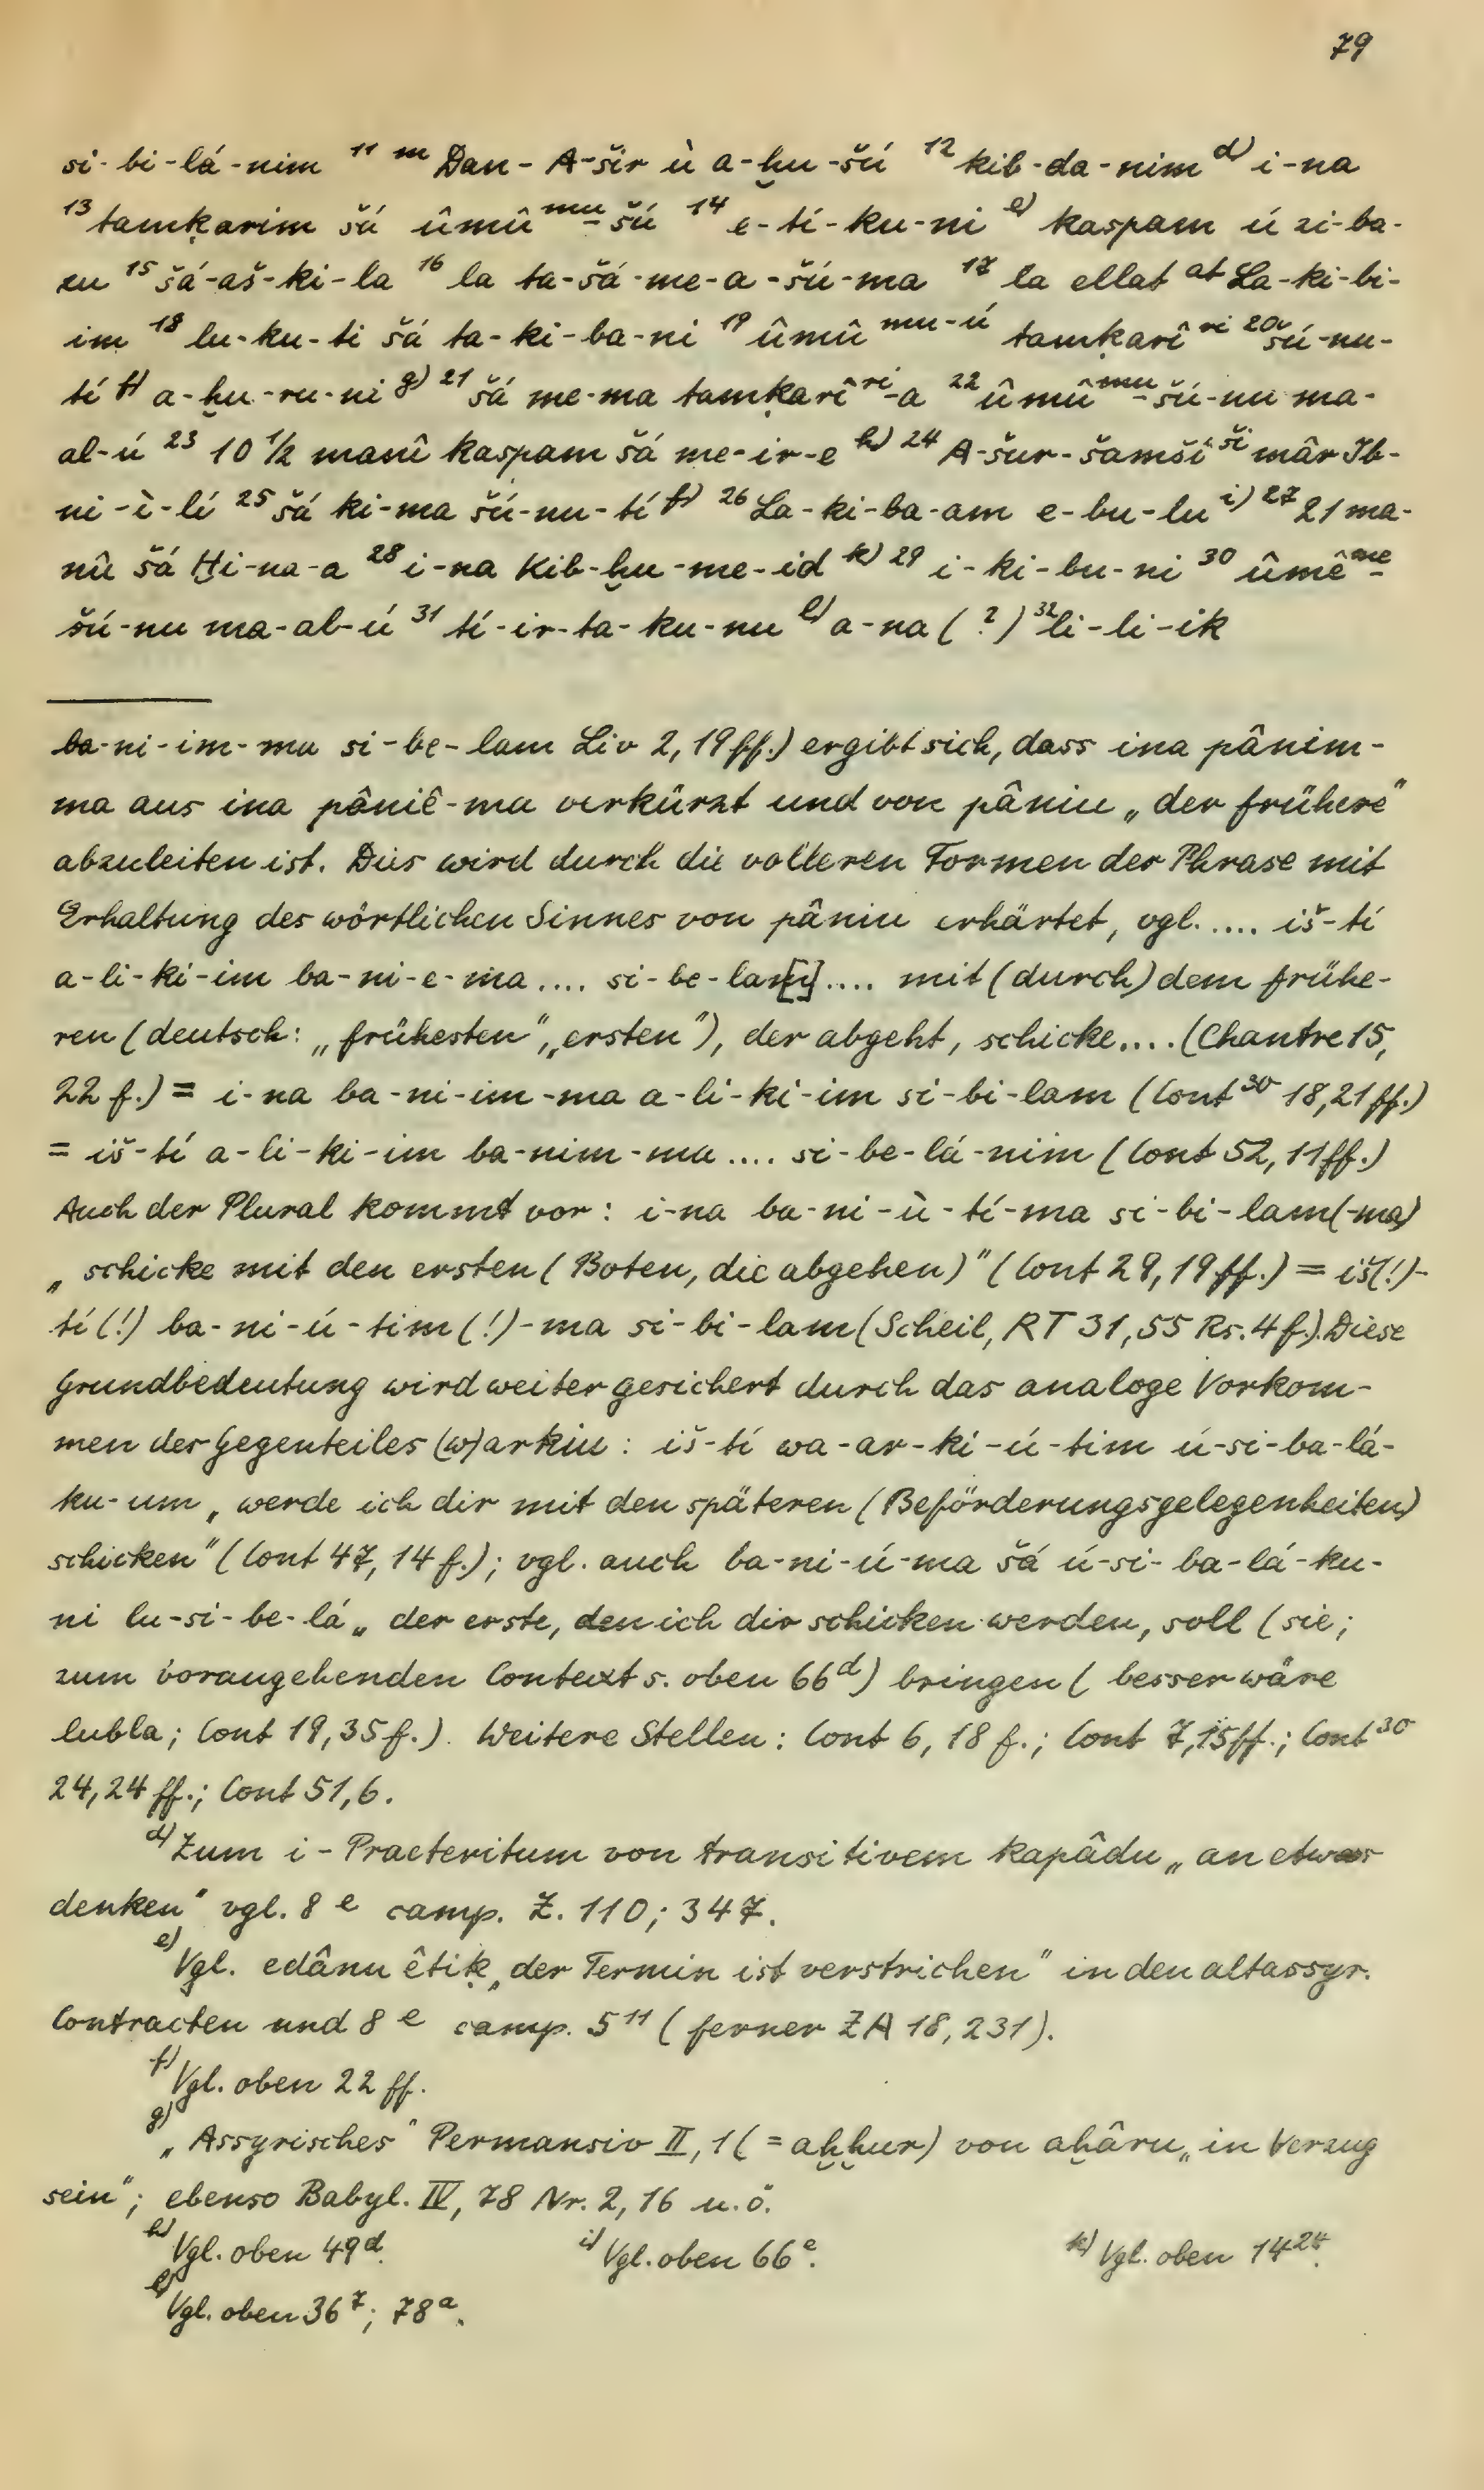 79
si-bi-lá-nim ¹¹ ᵐ Dan-A-šir ù a-ḫu-šú ¹² kib-da-nim ᵈ⁾ i-na
¹³ tamḳarim šá ûmû ᵐᵘ-šú ¹⁴ e-tí-ku-ni ᵉ⁾ kaspam ú zi-ba-
zu ¹⁵ šá-aš-ki-la ¹⁶ la ta-šá-me-a-šú-ma ¹⁷ la ellat ᵃᵗ La-ki-bi-
im ¹⁸ lu-ku-ti šá ta-ki-ba-ni ¹⁹ ûmû ᵐᵘ⁻ᵘ́ tamḳarî ʳⁱ ²⁰ šú-nu-
tí ᶠ⁾ a-ḫu-ru-ni ᵍ⁾ ²¹ šá me-ma tamḳarî ʳⁱ-a ²² ûmû ᵐᵘ-šú-nu ma-
al-ú ²³ 10 ½ manî kaspam šá me-ir-e ʰ⁾ ²⁴ A-šur-šamšî ˢⁱ̌ mâr Ib-
ni-ì-lí ²⁵ šá ki-ma šú-nu-tí ᶠ⁾ ²⁶ La-ki-ba-am e-bu-lu ⁱ⁾ ²⁷ 21 ma-
nû šá Ḫi-na-a ²⁸ i-na Kib-ḫu-me-id ᵏ⁾ ²⁹ i-ki-bu-ni ³⁰ ûmê ᵐᵉ-
šú-nu ma-al-ú ³¹ tí-ir-ta-ku-nu ˡ⁾ a-na (?) ³² li-li-ik
ba-ni-im-ma si-be-lam Liv 2, 19 ff.) ergibt sich, dass ina pânim-
ma aus ina pâniê-ma verkürzt und von pâniu „der frühere"
abzuleiten ist. Dies wird durch die volleren Formen der Phrase mit
Erhaltung des wörtlichen Sinnes von pâniu erhärtet, vgl. .... iš-tí
a-li-ki-im ba-ni-e-ma .... si-be-la[m] .... mit (durch) dem frühe-
ren (deutsch: „frühesten", „ersten"), der abgeht, schicke.... (Chantre 15,
22 f.) = i-na ba-ni-im-ma a-li-ki-im si-bi-lam (Cont³⁰ 18, 21 ff.)
= iš-tí a-li-ki-im ba-nim-ma .... si-be-lá-nim (Cont 52, 11 ff.)
Auch der Plural kommt vor: i-na ba-ni-ù-tí-ma si-bi-lam(-ma)
„schicke mit den ersten (Boten, die abgehen)" (Cont 29, 19 ff.) = iš(!)-
tí(!) ba-ni-ú-tim(!)-ma si-bi-lam (Scheil, RT 31, 55 Rs. 4 f.). Diese
Grundbedeutung wird weiter gesichert durch das analoge Vorkom-
men des Gegenteiles (w)arkiu: iš-tí wa-ar-ki-ú-tim ú-si-ba-lá-
ku-um „werde ich dir mit den späteren (Beförderungsgelegenheiten)
schicken" (Cont 47, 14 f.); vgl. auch ba-ni-ú-ma šá ú-si-ba-lá-ku-
ni lu-si-be-lá „der erste, den ich dir schicken werden, soll (sie;
zum vorangehenden Context s. oben 66ᵈ) bringen (besser wäre
lubla; Cont 19, 35 f.). Weitere Stellen: Cont 6, 18 f.; Cont 7, 15 ff.; Cont³⁰
24, 24 ff.; Cont 51, 6.
ᵈ⁾ Zum i-Praeteritum von transitivem kapâdu „an etwas
denken" vgl. 8ᵉ camp. Z. 110; 347.
ᵉ⁾ Vgl. edânu êtiḳ „der Termin ist verstrichen" in den altassyr.
Contracten und 8ᵉ camp. 5¹¹ (ferner ZA 18, 231).
ᶠ⁾ Vgl. oben 22 ff.
ᵍ⁾ „Assyrisches" Permansiv II, 1 (= aḫḫur) von aḫâru „in Verzug
sein"; ebenso Babyl. IV, 78 Nr. 2, 16 u. ö.
ʰ⁾ Vgl. oben 49ᵈ. ⁱ⁾ Vgl. oben 66ᵉ. ᵏ⁾ Vgl. oben 14²⁴.
ˡ⁾ Vgl. oben 36⁷; 78ᵃ.